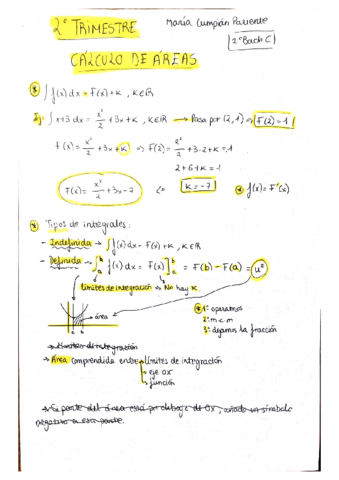 2º TRIMESTRE
María Cumplán Pariente
2º Bach C
CÁLCULO DE ÁREAS
∫ f(x) dx = F(x) + K , K∈ℝ
Ej: ∫ x+3 dx = x²/2 + 3x + K , K∈ℝ → Pasa por (2,1) ⇒ F(2) = 1
F(x) = x²/2 + 3x + K ⇒ F(2) = 2²/2 + 3·2 + K = 1
2 + 6 + K = 1
F(x) = x²/2 + 3x - 7 ⇐ K = -7
f(x) = F'(x)
Tipos de integrales:
- Indefinida → ∫ f(x) dx = F(x) + K , K∈ℝ
- Definida → ∫ₐᵇ f(x) dx = F(x)]ₐᵇ = F(b) - F(a) = u²
Límites de integración → No hay K.
área
a b
1º operamos
2º m c m
3º dejamos la fracción
→ Límites de integración
→ Área comprendida entre límites de integración
eje OX
función
→ Si parte del área está por debajo de OX, añado un símbolo
negativo a esa parte.